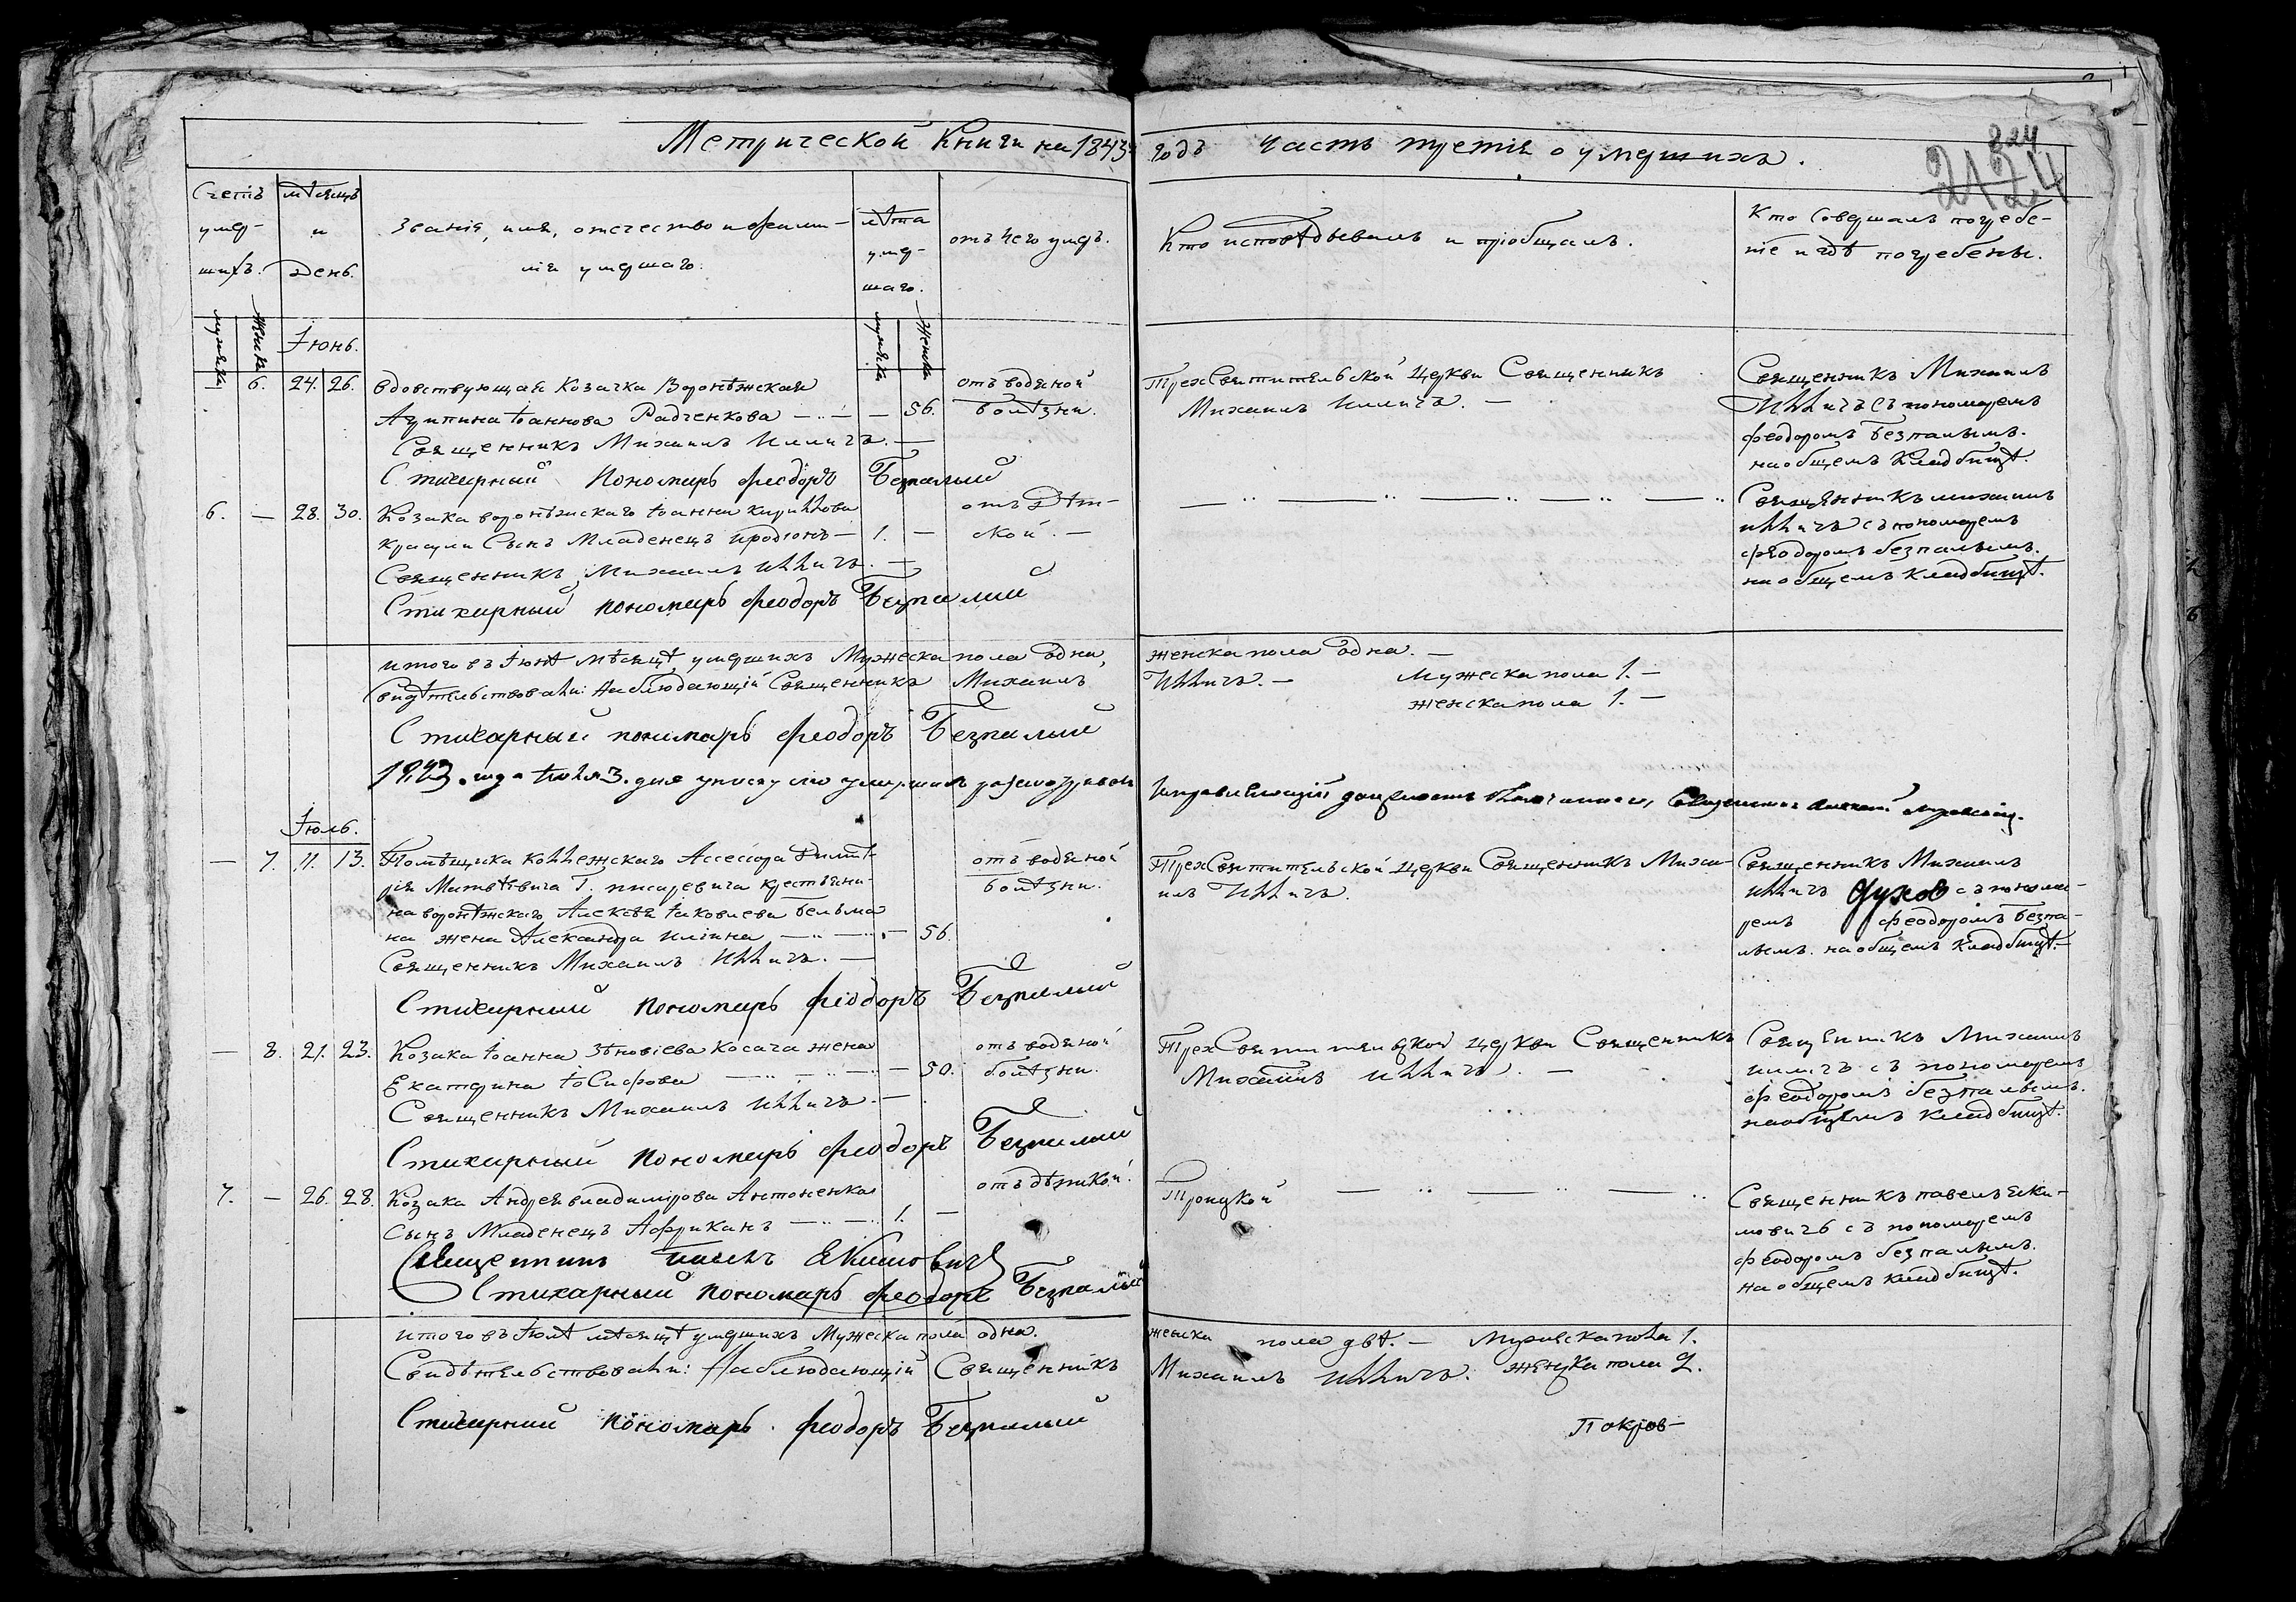 Метрической Книги на 1843й годъ часть третія о умершихъ.
824
2124
24
Счетъ умер- шихъ.
мѣсяцъ и день.
званія, имя, отечество и фамил-
лія умершаго.
лѣта умер- шаго.
отъ чего умеръ.
Кто исповѣдывалъ и пріобщалъ.
Кто совершалъ погребе-
ніе и гдѣ погребены.
мужска женска
мужска женска
Іюнь.
— 6. 24. 26. вдовствующая Козачка Воронѣжская
Агрипина Іоаннова Радченкова — — 56.
отъ водяной
болѣзни.
Священникъ Михаилъ Илличъ. —
Стихарный Пономарь Феодоръ Безпалый
Трех Святительской Церкви Священникъ
Михаилъ Илличъ. —
Священникъ Михаилъ
Илличъ съ пономаремъ
феодоромъ Безпалымъ.
на общемъ Кладбищѣ.
6. — 28. 30. Козака воронѣжскаго Іоанна Кириллова
Красули Сынъ Младенецъ Иродіонъ — 1. —
отъ дѣт-
ской. —
Священникъ Михаилъ Илличъ. —
Стихарный пономарь Феодоръ Безпалый
Священникъ михаилъ
илличъ съ пономаремъ
феодоромъ безпалымъ.
на общемъ кладбищѣ.
итого въ Іюнѣ мѣсяцѣ умершихъ Мужеска пола одна, женска пола одна. —
Свидѣтельствовали: Наблюдающій Священникъ Михаилъ Илличъ. — Мужеска пола 1. —
женска пола 1. —
Стихарный пономарь Феодоръ Безпалый
1843. года Іюля 3. дня умершихъ Священникъ
Іюль.
— 7. 11. 13. Помѣщика Коллежскаго Ассесора Димит-
рія Матвѣевича Г. писаревича крестьяни-
на воронѣжскаго Алексѣя Іаковлева Бельма-
на жена Александра Иліина — — 56.
отъ водяной
болѣзни.
Священникъ Михаилъ Илличъ. —
Стихарный пономарь Феодоръ Безпалый
Трех Святительской Церкви Священникъ Миха-
илъ Илличъ.
Священникъ Михаилъ
Илличъ съ понома-
ремъ феодоромъ Безпа-
лымъ. на общемъ кладбищѣ. —
— 8. 21. 23. Козака Іоанна Зѣновіева Косача жена
Екатерина Іосифова — — 50.
отъ водяной
болѣзни.
Священникъ Михаилъ Илличъ. —
Стихарный пономарь Феодоръ Безпалый
Трех Святительской Церкви Священникъ
Михаилъ Илличъ. —
Священникъ Михаилъ
илличъ съ пономаремъ
феодоромъ безпалымъ.
на общемъ кладбищѣ.
7. — 26. 28. Козака Андрея владимірова Антоненка
Сынъ Младенецъ Африканъ — 1. —
отъ дѣтской.
Священникъ Павелъ Якимовичъ
Стихарный пономарь Феодоръ Безпалый
Троицкой
Священникъ павелъ Яки-
мовичъ съ пономаремъ
феодоромъ безпалымъ.
на общемъ кладбищѣ.
итого въ Іюлѣ мѣсяцѣ умершихъ Мужеска пола одна. женска пола двѣ. — Мужеска пола 1.
Свидѣтельствовали: Наблюдающій Священникъ Михаилъ Илличъ. женска пола 2.
Стихарный пономарь Феодоръ Безпалый
Покров-